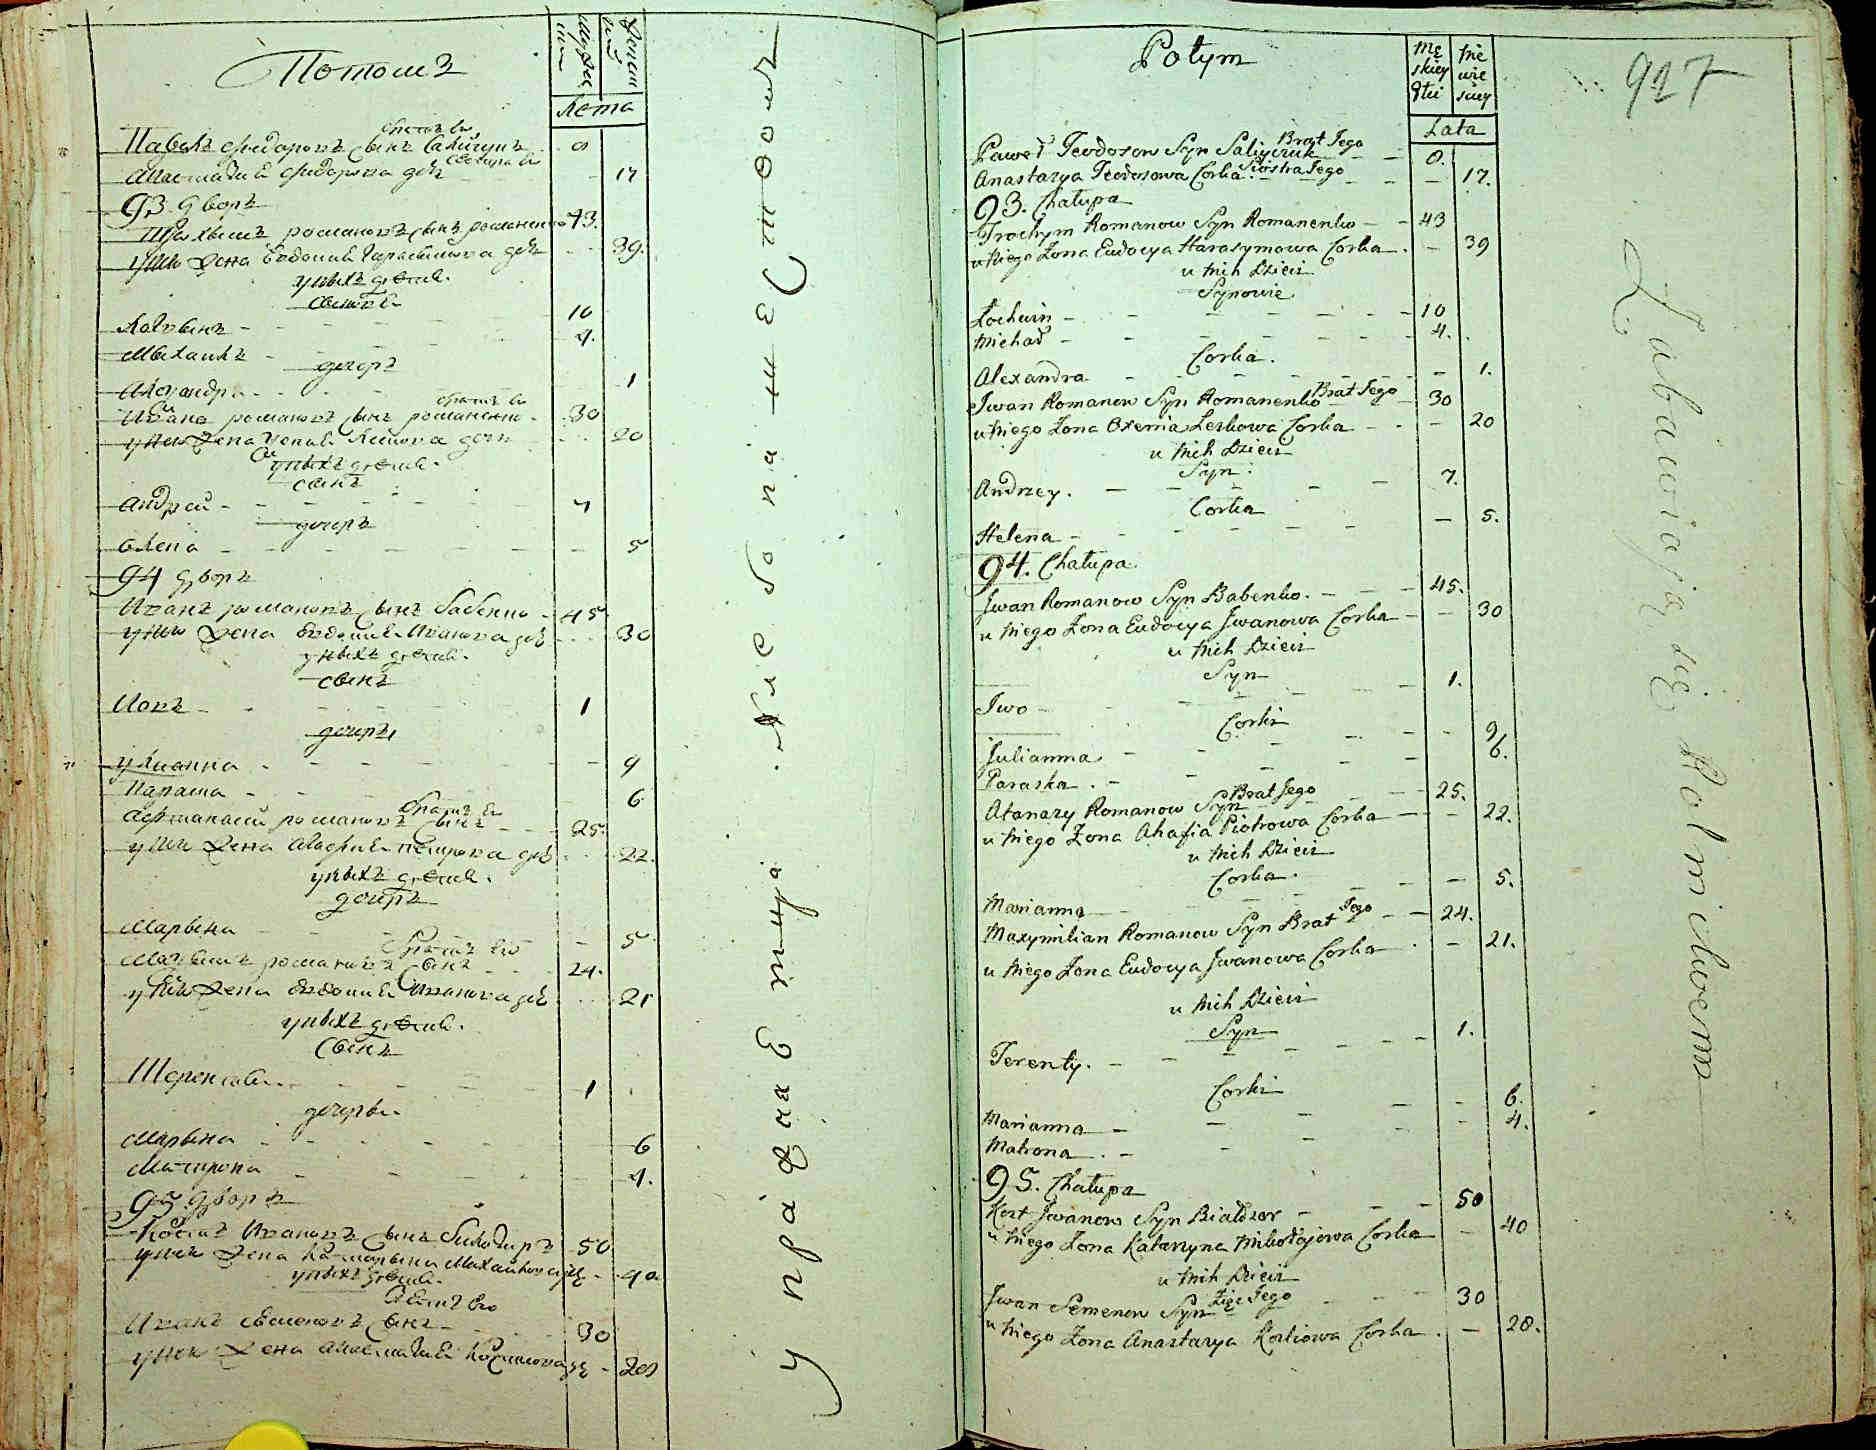 Потомъ
Мужеска
Женска
Лета
Павелъ Фидоровъ сынъ Салийчукъ братъ Ево 9
Анастасия Фидорова дочь сестра Ево 17
93 дворъ
Трохимъ романовъ сынъ романенко 43.
у него жена Евдокия Гарасимова дочь 39.
у нихъ дети.
сыновья
Логвинъ 10
Михаилъ 4.
дочерь
Александра 1
Иванъ романовъ сынъ романенко братъ Ево 30
у него жена 20
у нихъ дети.
сынъ
Андрей 7
дочерь
Елена 5
94 дворъ
Иванъ романовъ сынъ бабенко 45
у него жена Евдокия Иванова дочь 30
у нихъ дети.
сынъ
Иовъ 1
дочери
Улианна 9
Параска 6
Афтанасий романовъ сынъ братъ Ево 25.
у него жена Агафия петрова дочь 22.
у нихъ дети.
дочерь
Марьена 5
Максимъ романовъ сынъ братъ Ево 24.
у него жена Евдокия Иванова дочь 21
у нихъ дети.
сынъ
Терентий 1
дочери
Марьена 6
Матрона 4.
95 дворъ
Костъ Ивановъ сынъ билодиръ 50
у него жена Катерына Михайлова дочь 40
у нихъ дети.
зять Ево
Иванъ семеновъ сынъ 30
у него жена Анастасия Костюкова дочь 20
Potym
Mę
skiey
Płci
Nie
wie
sciey
Lata
927
Paweł Teodorow Syn Saliyczuk Brat Jego 9.
Anastazya Teodorowa Corka Siostra Jego 17.
93. Chałupa
Trochym Romanow Syn Romanenko 43
u niego Zona Eudocya Harasymowa Corka 39
u nich Dzieci
Synowie
Łochwin 10
Michał 4.
Corka.
Alexandra 1.
Jwan Romanow Syn Romanenko Brat Jego 30
u niego Zona Oxenia Leskowa Corka 20
u nich Dzieci
Syn.
Andrzey. 7.
Corka
Helena 5.
94. Chałupa.
Jwan Romanow Syn Babenko. 45.
u niego Zona Eudocya Jwanowa Corka 30
u nich Dzieci
Syn
Jwo 1.
Corki
Julianna 9
Paraska. 6.
Atanazy Romanow Syn Brat Jego 25.
u niego Zona Ahafia Piotrowa Corka 22.
u nich Dzieci
Corka.
Marianna 5.
Maxymilian Romanow Syn Brat Jego 24.
u niego Zona Eudocya Jwanowa Corka 21.
u nich Dzieci
Syn
Terenty. 1.
Corki
Marianna 6.
Matrona. 4.
95. Chałupa
Kost Jwanow Syn Białdzor 50
u niego Zona Katarzyna Mikołajowa Corka 40
u nich Dzieci
Jwan Semenow Syn Zięc Jego 30
u niego Zona Anastazya Kostiowa Corka. 20.
Zabawiają się Rolnictwem